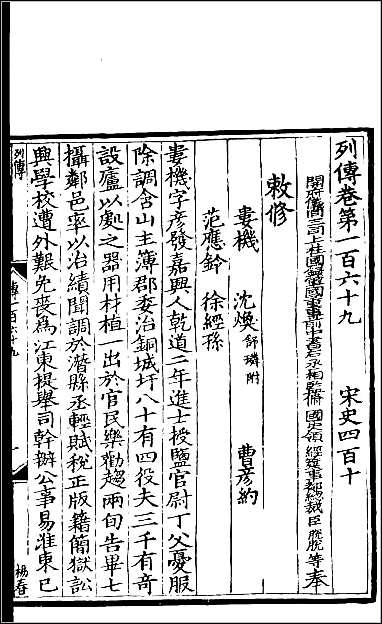 列傳卷第一百六十九　宋史四百十
開府儀同三司上柱國錄軍國重事前中書右丞相監脩國史領經筵事都總裁臣脫脫等奉
敕修
婁機　沈煥舒璘附　曹彥約
范應鈴　徐經孫
婁機字彥發嘉興人乾道二年進士授鹽官尉丁父憂服
除調含山主簿郡委治銅城圩八十有四役夫三千有奇
設廬以處之器用材植一出於官民樂勸趨兩旬告畢七
攝鄰邑率以治績聞調於潛縣丞輕賦稅正版籍簡獄訟
興學校遭外艱免喪爲江東提舉司幹辦公事易淮東已
列傳
傳一百六十九
一
楊春